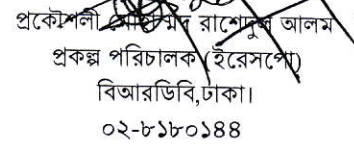 প্রকৌশলী মোহাম্মদ রাশেদুল আলম
প্রকল্প পরিচালক (ইরেসপো)
বিআরডিবি,ঢাকা।
০২-৮১৮০১৪৪